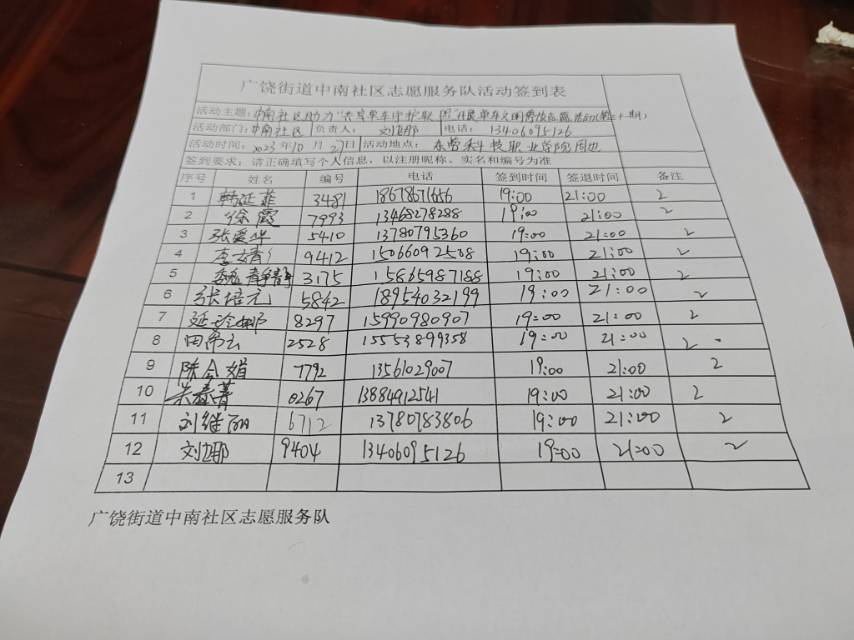 广饶街道中南社区志愿服务队活动签到表
活动主题：中南社区助力"共享单车守护联盟"开展单车文明摆放志愿活动
活动部门：中南社区 负责人：刘娜 电话：13406095126
活动时间：2023年10月27日 活动地点：东营科技职业学院周边
签到要求：请正确填写个人信息，以注册昵称、实名和编号为准
序号 姓名 编号 电话 签到时间 签退时间 备注
1 韩延菲 3481 18678671656 19:00 21:00 2
2 徐霞 7993 13468278288 19:00 21:00 2
3 张爱华 5410 13780795360 19:00 21:00 2
4 李婧 9412 15066092508 19:00 21:00 2
5 魏静静 3175 15865987188 19:00 21:00 2
6 张培元 5842 18954032199 19:00 21:00 2
7 延珍娜 8297 15990980907 19:00 21:00 2
8 田 2528 15553899358 19:00 21:00 2
9 陈会娟 7792 13561029007 19:00 21:00 2
10 朱春菁 0267 13884912541 19:00 21:00 2
11 刘继丽 6712 13780783806 19:00 21:00 2
12 刘娜 9404 13406095126 19:00 21:00 2
13
广饶街道中南社区志愿服务队